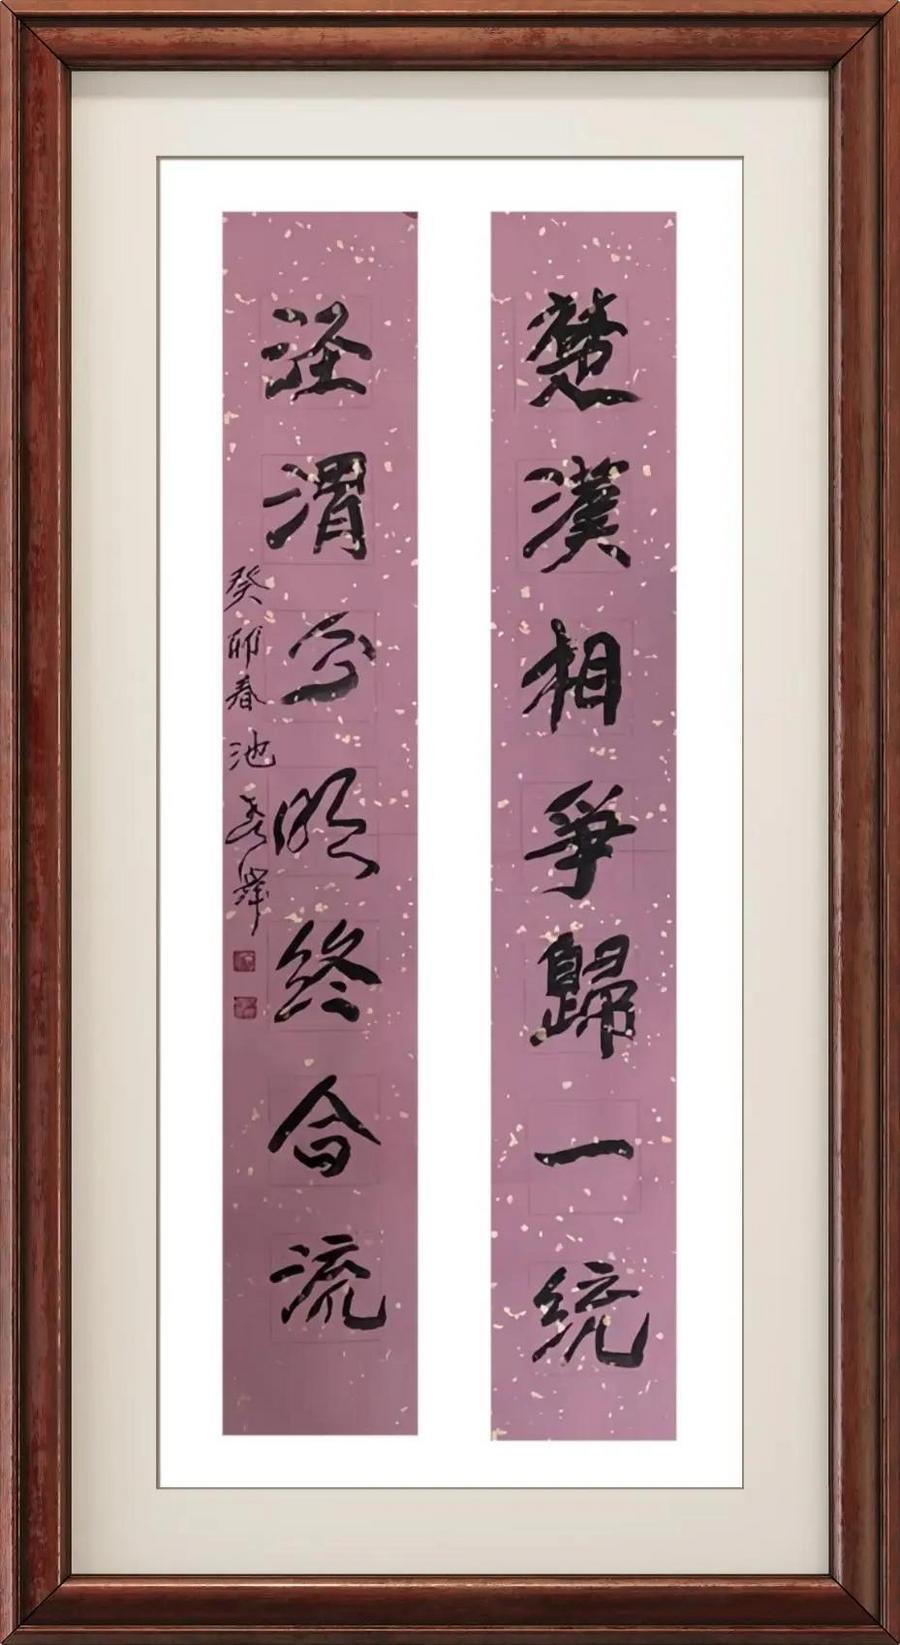 楚漢相爭歸一統
涇渭分明終合流
癸卯春池秀